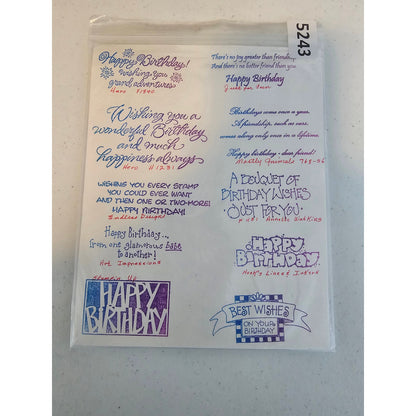 5243
Happy Birthday!
Wishing you
grand adventures
Hero F1340
Wishing you a
wonderful Birthday
and much
happiness always
Hero H1231
WISHING YOU EVERY STAMP
YOU COULD EVER WANT
AND THEN ONE OR TWO-MORE!
HAPPY BIRTHDAY!
Sudless Designs
Happy birthday...
from one glamorous babe
to another!
Art Impressions
Stampin Up
HAPPY
BIRTHDAY
There's no joy greater than friendship,
And there's no better friend than you.
Happy Birthday
Just for Fun
Birthdays come once a year.
A friendship, such as ours,
comes along only once in a lifetime.
Happy birthday - dear friend!
Mostly Animals
A BOUQUET OF
BIRTHDAY WISHES
JUST FOR YOU
Happy
Birthday.
BEST WISHES
ON YOUR
BIRTHDAY